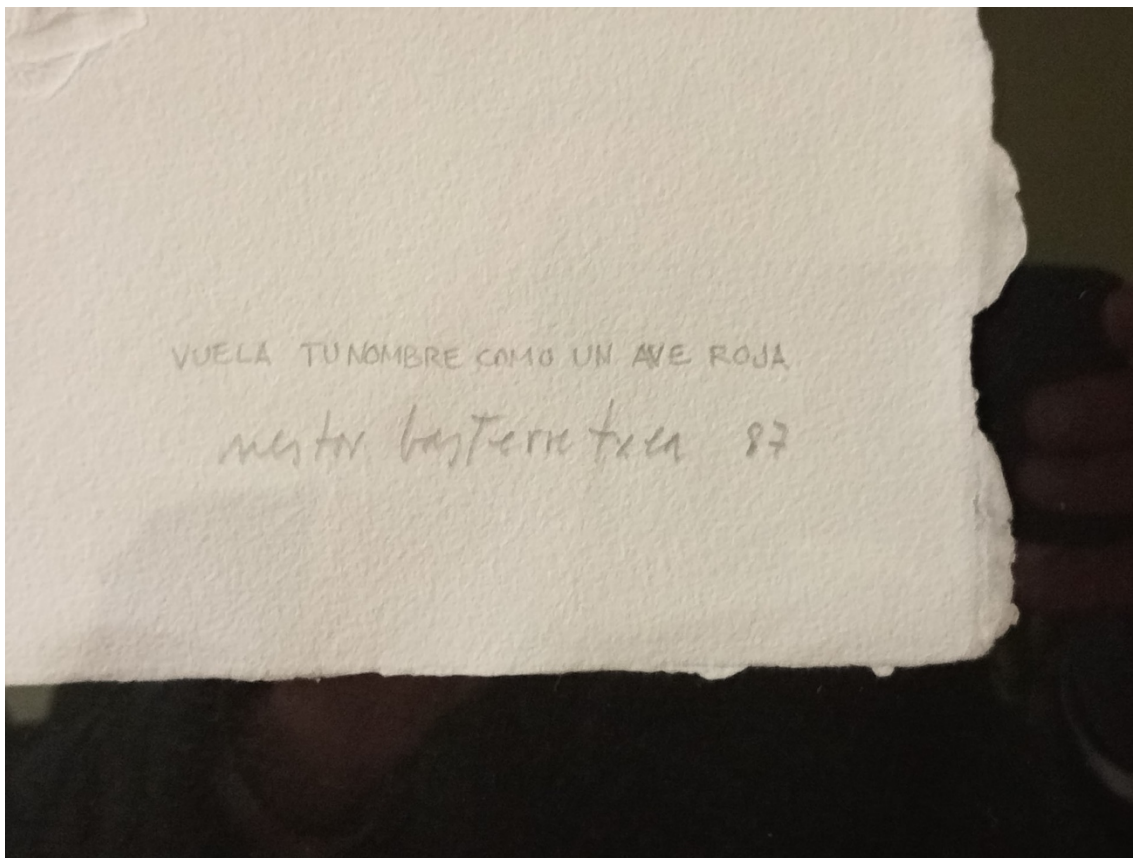 VUELA TU NOMBRE COMO UN AVE ROJA
nestor basterretxea 87